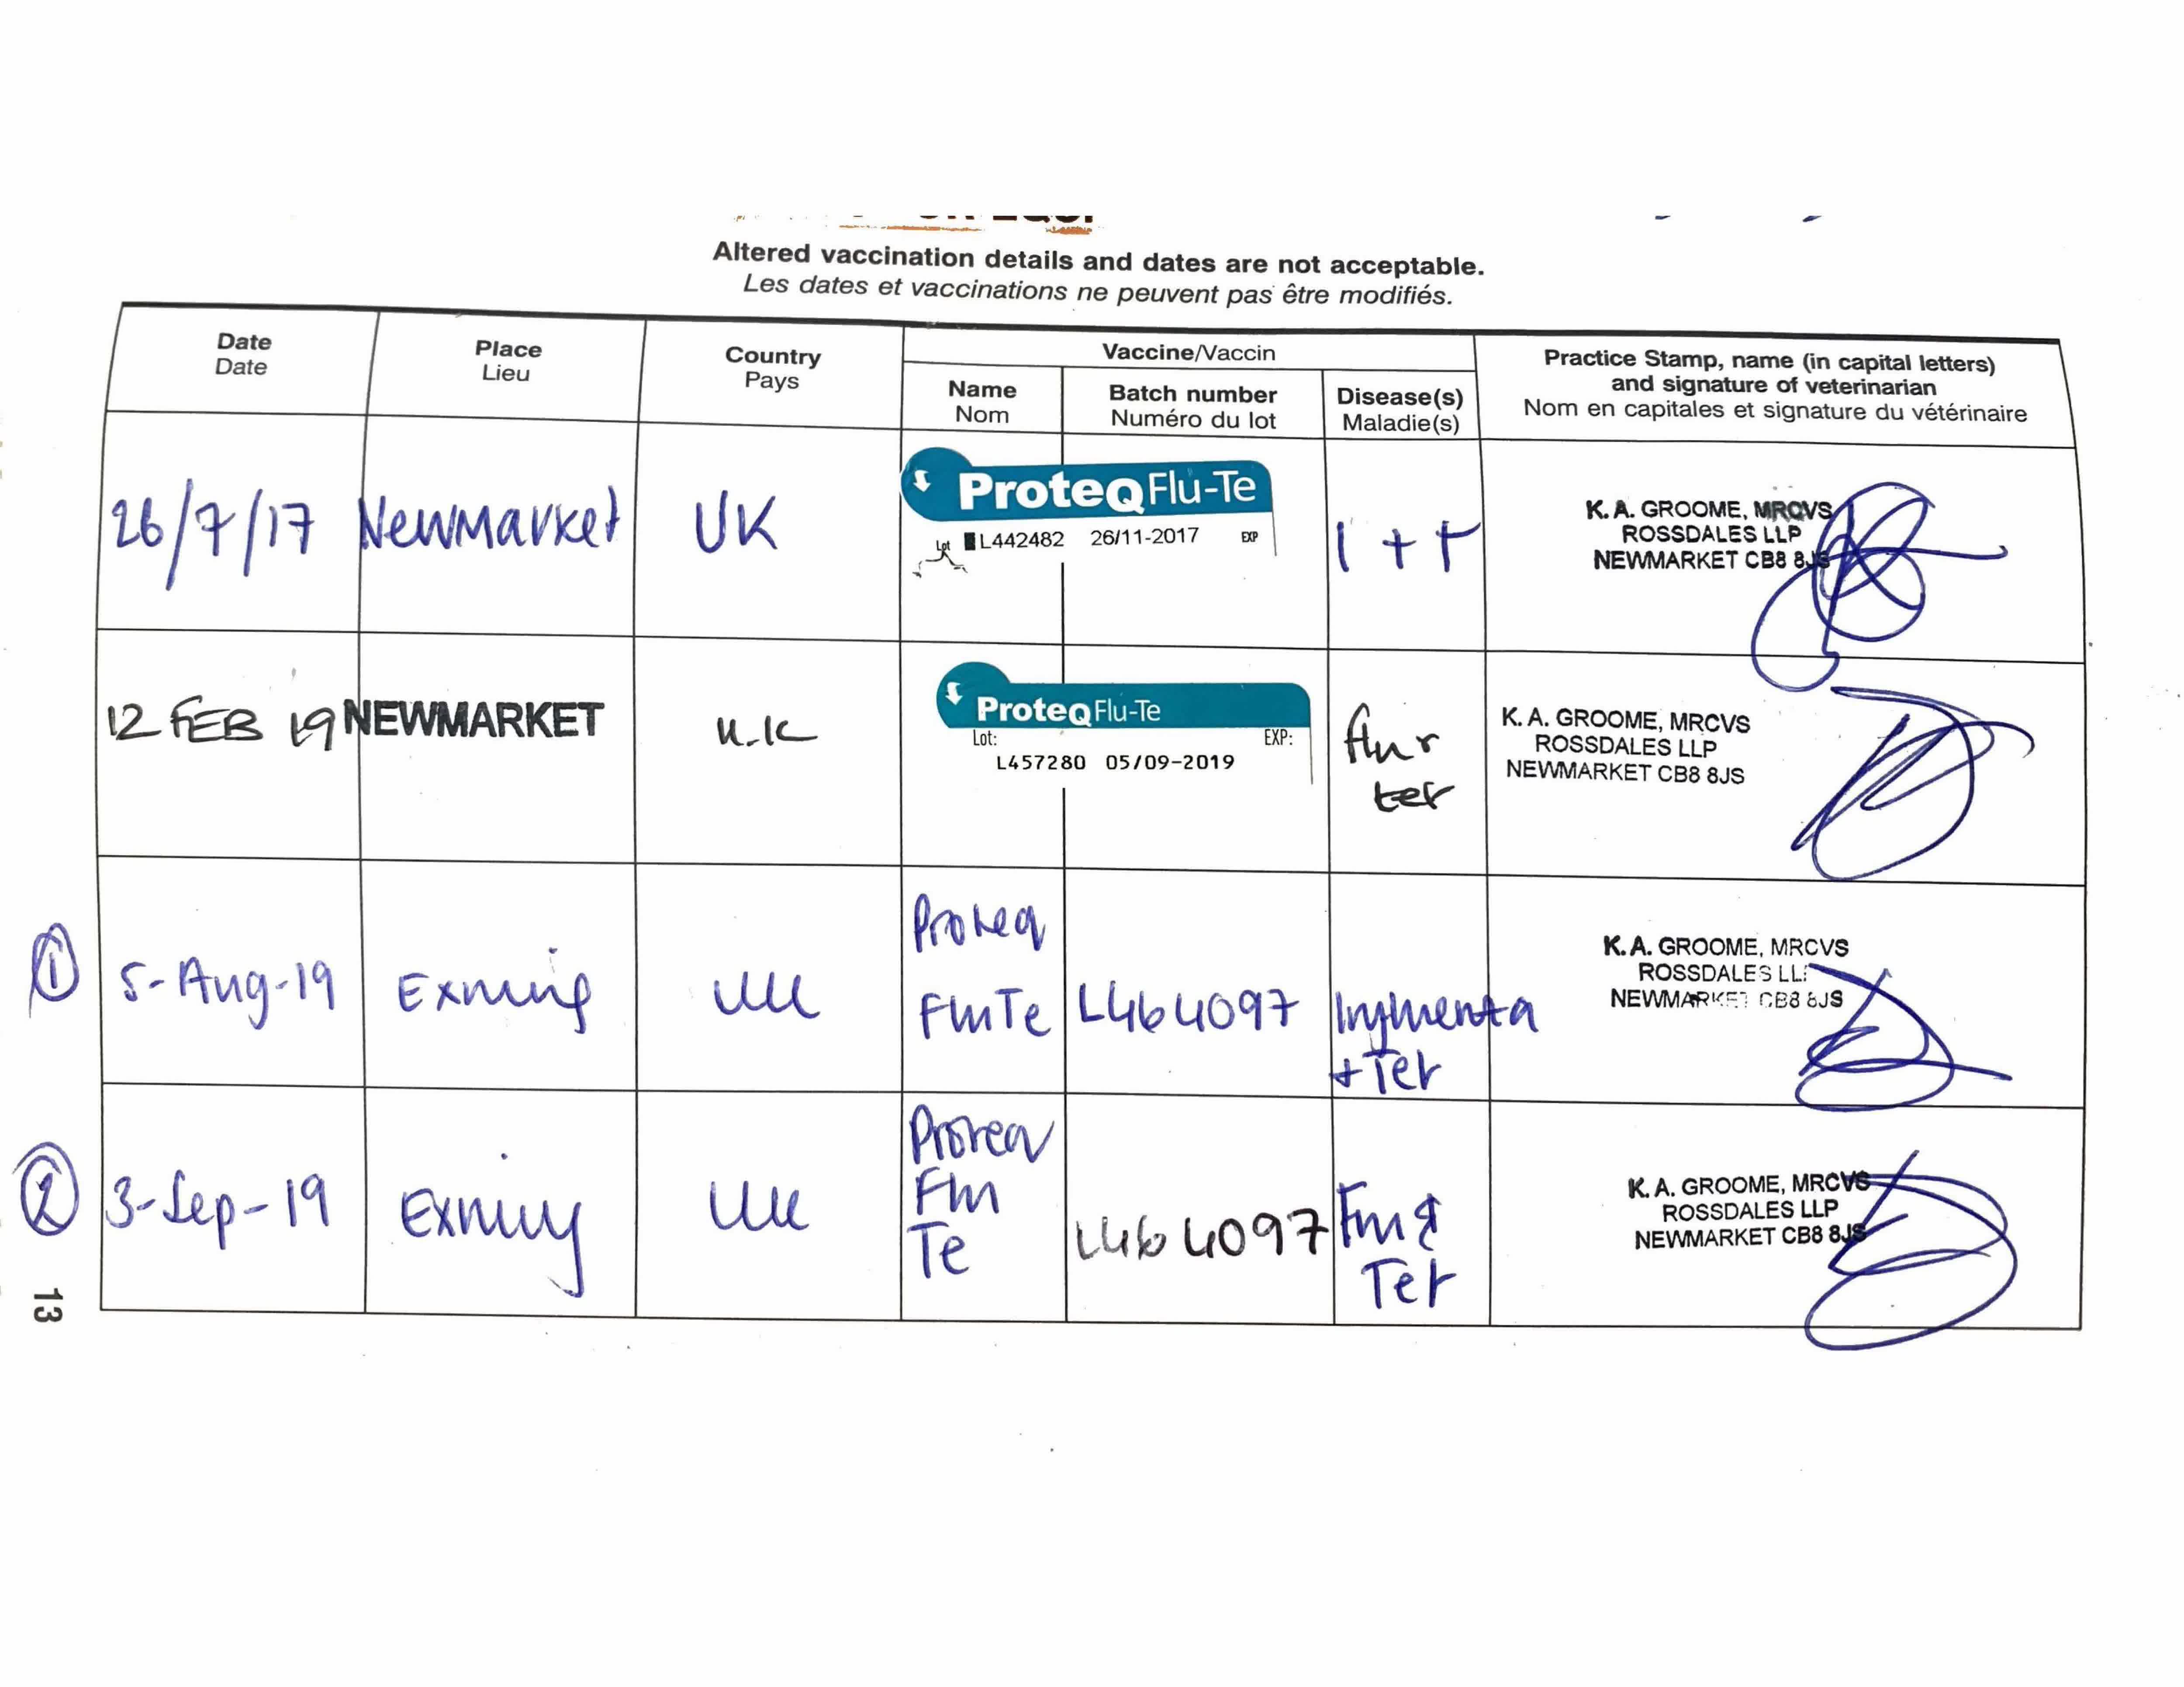 Altered vaccination details and dates are not acceptable.
Les dates et vaccinations ne peuvent pas être modifiés.
Date
Date
Place
Lieu
Country
Pays
Vaccine/Vaccin
Name
Nom
Batch number
Numéro du lot
Disease(s)
Maladie(s)
Practice Stamp, name (in capital letters)
and signature of veterinarian
Nom en capitales et signature du vétérinaire
26/7/17
Newmarket
UK
ProteqFlu-Te
Lot L442482 26/11-2017 EXP
I + T
K. A. GROOME, MRCVS
ROSSDALES LLP
NEWMARKET CB8 8JS
12 FEB 19
NEWMARKET
U.K
ProteqFlu-Te
Lot: EXP:
L457280 05/09-2019
flu
tet
K. A. GROOME, MRCVS
ROSSDALES LLP
NEWMARKET CB8 8JS
①
5-Aug-19
Exning
UK
Proteq
FluTe
L464097
Influenza
+ Tet
K. A. GROOME, MRCVS
ROSSDALES LLP
NEWMARKET CB8 8JS
②
3-Sep-19
Exning
UK
Proteq
Flu
Te
L464097
Flu &
Tet
K. A. GROOME, MRCVS
ROSSDALES LLP
NEWMARKET CB8 8JS
13